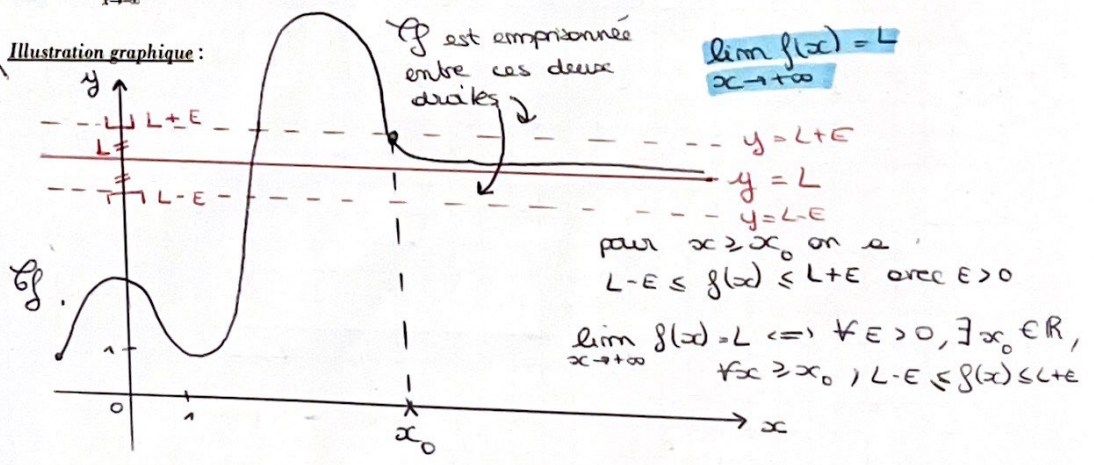 Illustration graphique :
𝒞f est emprisonnée
entre ces deux
droites
lim f(x) = L
x→+∞
y
L+ε
L
L-ε
y = L+ε
y = L
y=L-ε
pour x ≥ x₀ on a
L-ε ≤ f(x) ≤ L+ε avec ε>0
𝒞f
lim f(x) = L <=> ∀ε>0, ∃x₀ ∈ R,
x→+∞
∀x ≥ x₀, L-ε ≤ f(x) ≤ L+ε
1
0
1
x₀
x